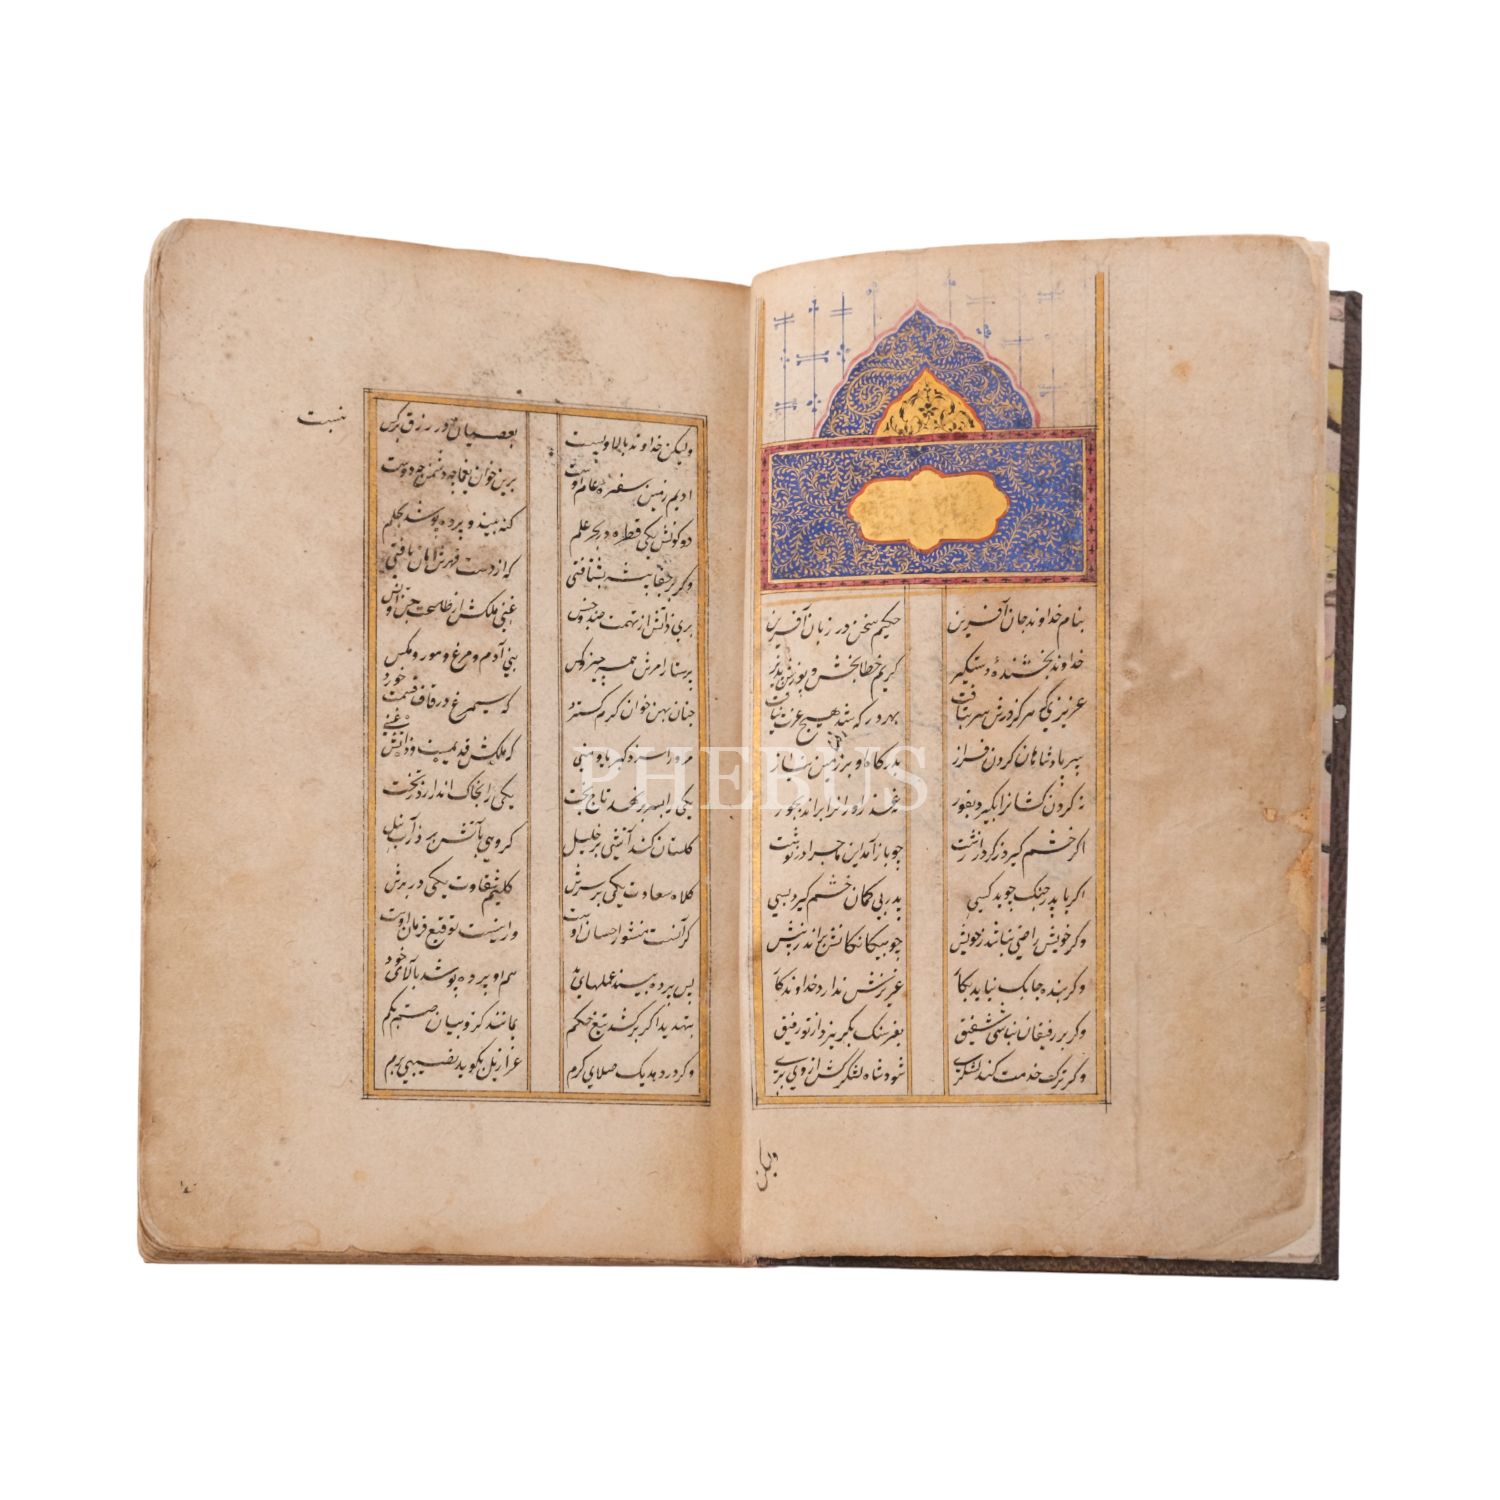 بنام خداوند جان آفرین حکیم سخن در زبان آفرین
خداوند بخشندهٔ دستگیر کریم خطا بخش و پوزش پذیر
عزیزی که هر کز درش سر بتافت بهر در که شد هیچ عزت نیافت
سر پادشاهان کردن فراز بدرکاه او بر زمین نیاز
نه کردن کشانرا بگیرد بفور نه عذر آورانرا براند بجور
اگر خشم گیرد ز کردار زشت چو باز آمدی ماجرا در نوشت
اگر با پدر جنک جوید کسی پدر بی کمان خشم گیرد بسی
وگر خویش راضی نباشد ز خویش چو بیکانکانش براند ز پیش
وگر بنده چابک نیاید بکار عزیزش ندارد خداوندکار
وگر بر رفیقان نباشی شفیق بفرسنک بگریزد از تو رفیق
وگر ترک خدمت کند لشکری شود شاه لشکرکش از وی بری
ولیکن
ولیکن خداوند بالا و پست بعصیان در رزق بر کس
نبست
ادیم زمین سفرهٔ عام اوست برین خوان یغما چه دشمن چه دوست
دو کونش یکی قطره در بحر علم کنه بیند و پرده پوشد بحلم
وگر بر جفا پیشه بشتافتی که از دست قهرش امان یافتی
بری ذاتش از تهمت ضد و جنس غنی ملکش از طاعت جن و انس
پرستار امرش همه چیز و کس بنی آدم و مرغ و مور و مکس
چنان پهن خوان کرم کسترد که سیمرغ در قاف قسمت خورد
مر او را رسد کبریا و منی که ملکش قدیمست و ذاتش غنی
یکی را بسر برنهد تاج بخت یکی را بخاک اندر آرد ز تخت
کلاه سعادت یکی بر سرش کلیم شقاوت یکی در برش
کلستان کند آتشی بر خلیل کروهی بآتش برد ز آب نیل
گر آنست منشور احسان اوست ور اینست توقیع فرمان اوست
پس پرده بیند عملهای بد هم او پرده پوشد بآلای خود
بتهدید اگر برکشد تیغ حکم بمانند کروبیان صم و بکم
وگر در دهد یک صلای کرم عزازیل گوید نصیبی برم
PHEBUS